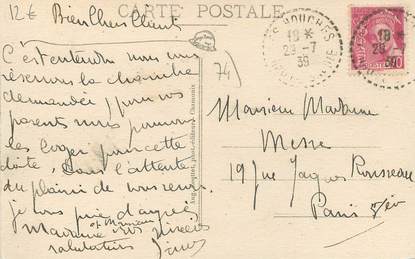 12€
Bien Chers Client
CARTE POSTALE
C'est entendu nous vous
réservons la chambre
demandée, pour vos
parents nous pouvons
les loger pour cette
date, Dans l'attente
du plaisir de vous revoir
je vous prie d'agréer
Madame et Monsieur nos
salutations
74)
LES HOUCHES
18 *
29-7
39
HAUTE-SAVOIE
18 *
29
39
Monsieur Madame
Messe
19 rue Jaques Rousseau
Paris